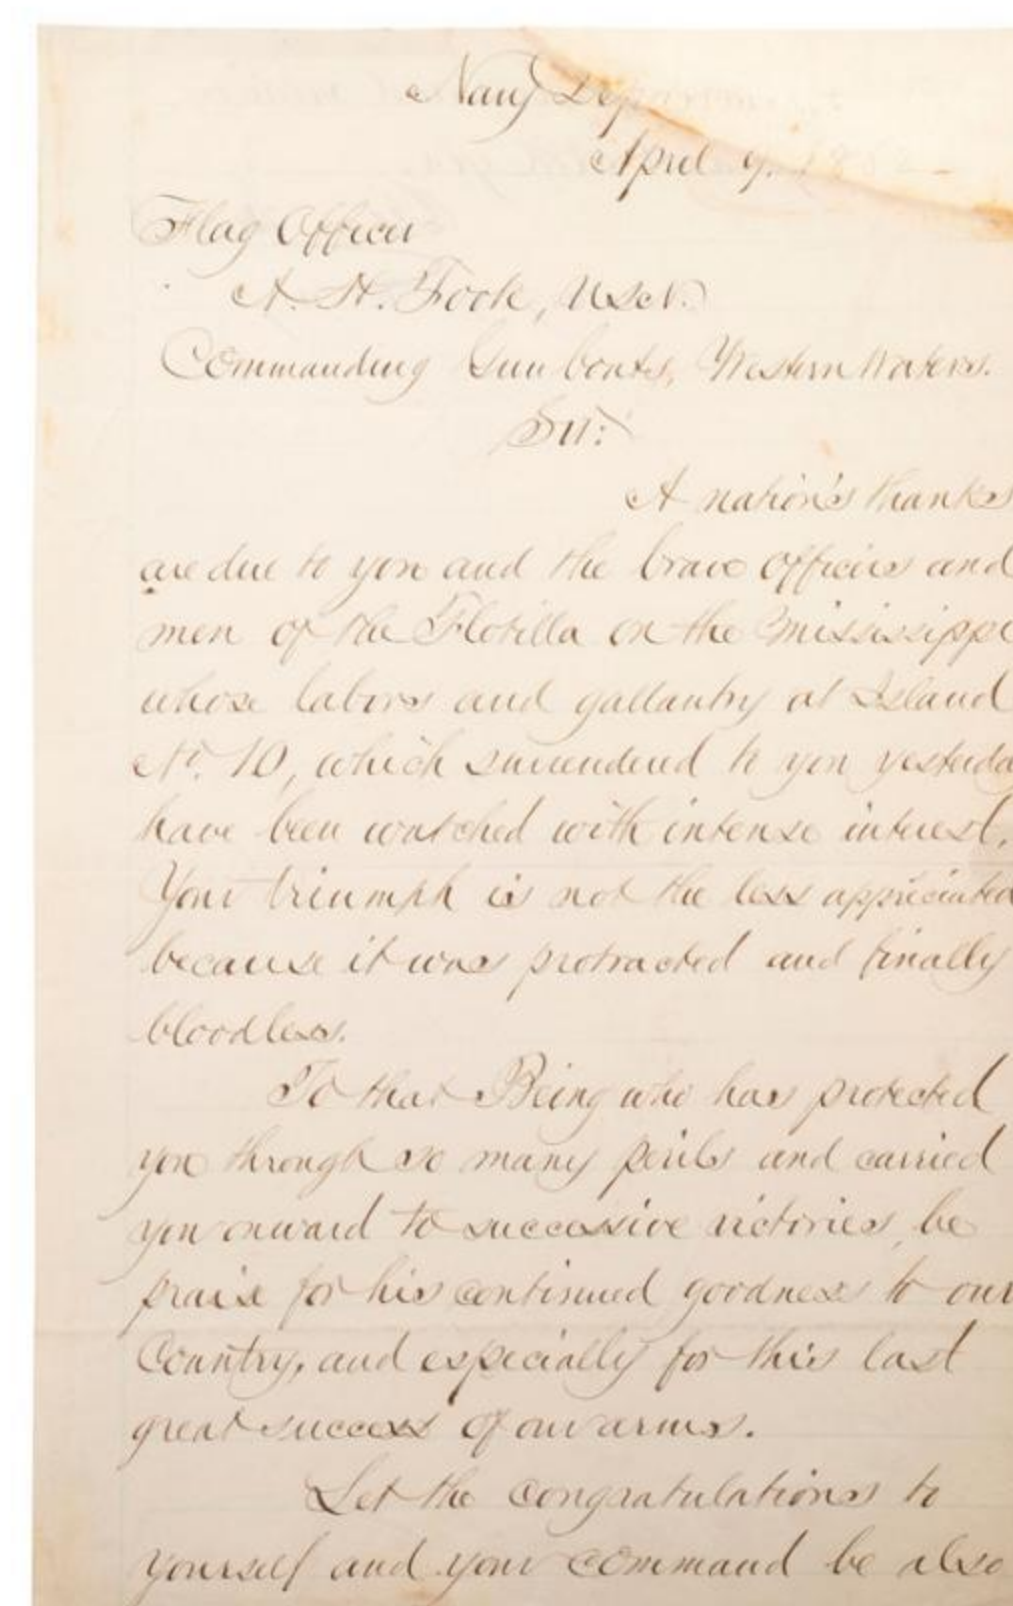 Navy Dep
April 9.
Flag Officer
A. H. Foote, U.S.N.
Commanding Gun boats, Western Waters.
Sir:
A nation's thanks
are due to you and the brave officers and
men of the Flotilla on the Mississippi
whose labors and gallantry at Island
No. 10, which surrendered to you yesterda
have been watched with intense interest.
Your triumph is not the less appreciated
because it was protracted and finally
bloodless.
To that Being who has protected
you through so many perils and carried
you onward to successive victories, be
praise for his continued goodness to our
Country, and especially for this last
great success of our arms.
Let the congratulations to
yourself and your command be also